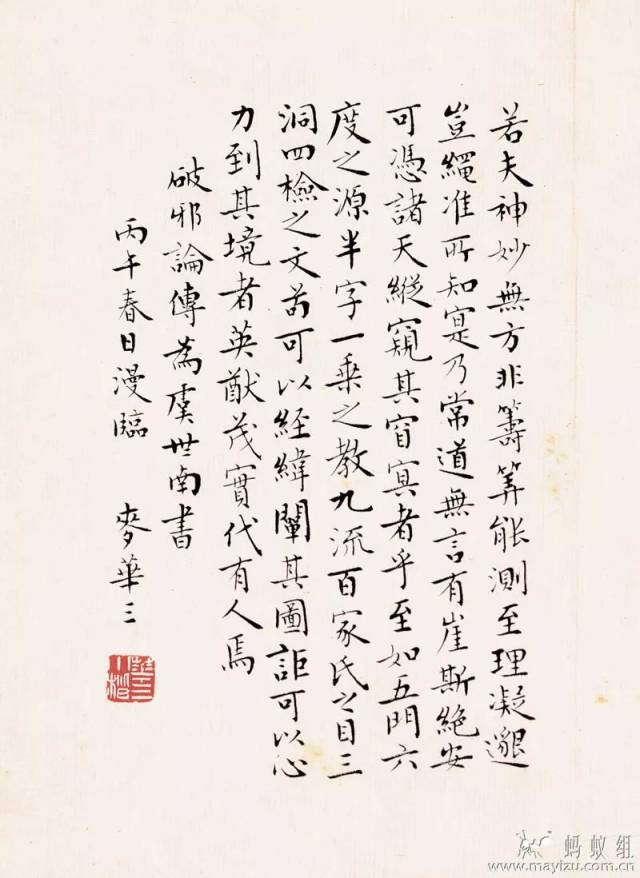 若夫神妙無方非籌筭能測至理凝邈
豈繩准所知寔乃常道無言有崖斯絶安
可憑諸天縱窺其窅冥者乎至如五門六
度之源半字一乗之教九流百家氏之目三
洞四檢之文苟可以経緯闡其圖詎可以心
力到其境者英猷茂實代有人焉
破邪論傳為虞世南書
丙午春日漫臨 麥華三
蚂蚁组
www.mayizu.com.cn